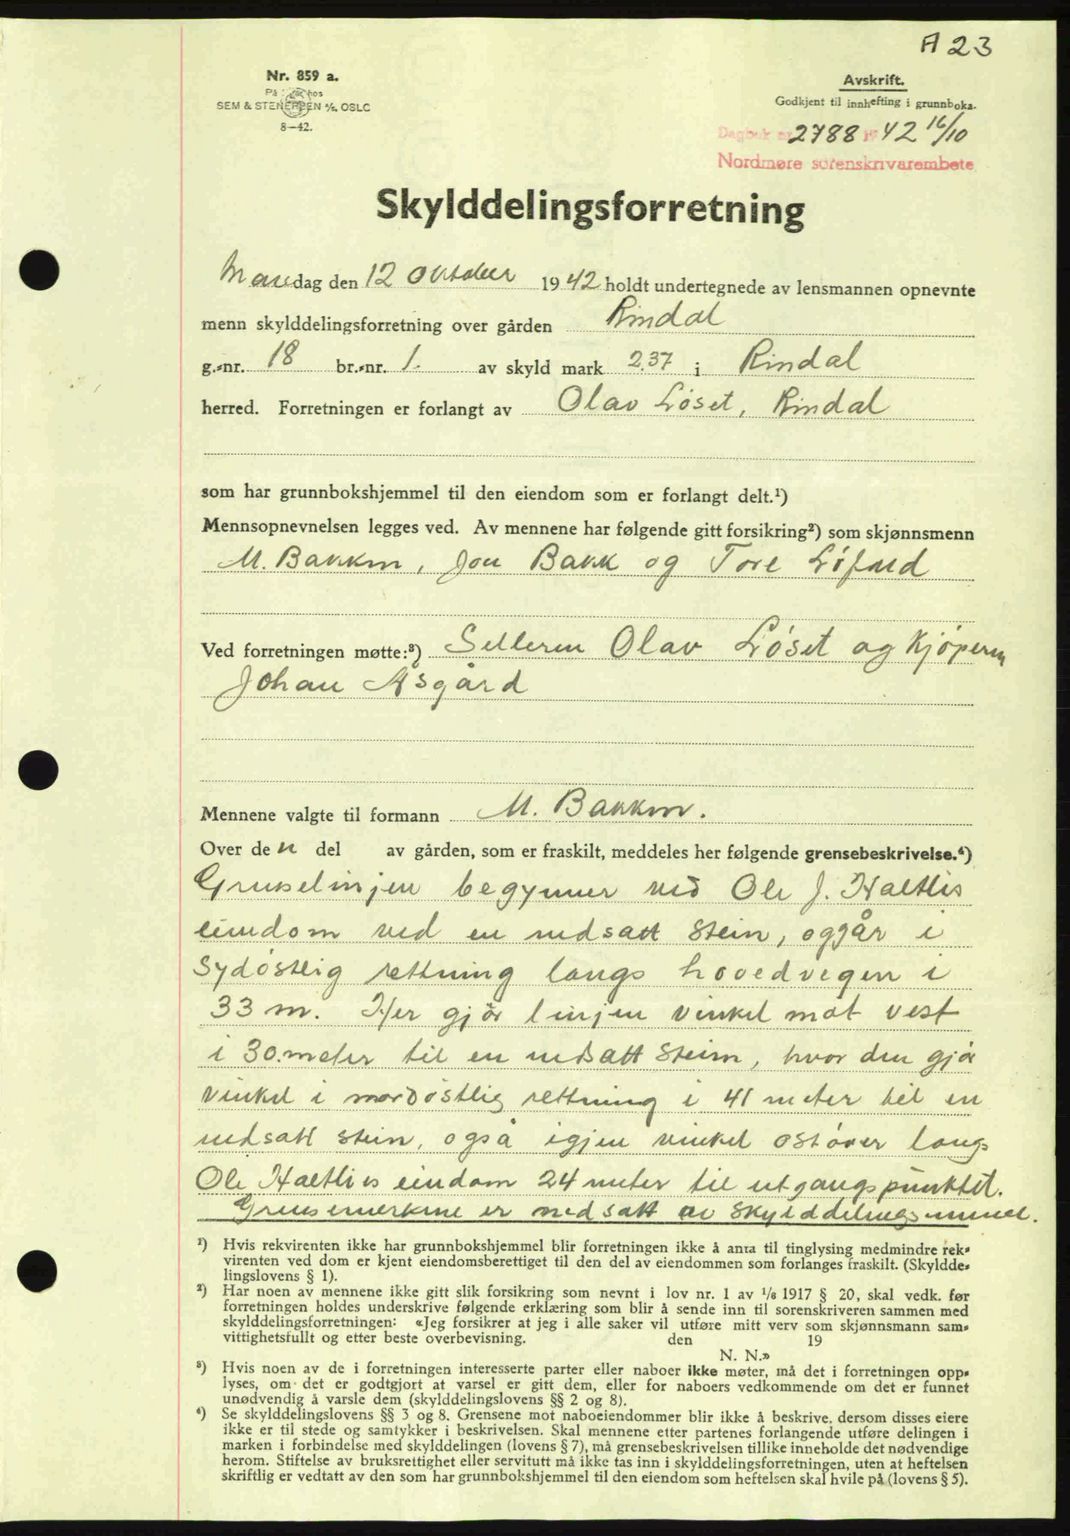 A 23
Nr. 859 a.
På lager hos
SEM & STENERSEN A/S, OSLO
8—42.
Avskrift.
Godkjent til innhefting i grunnboka.
Dagbok nr 2788 19 42 16/10
Nordmøre sorenskrivarembete
Skylddelingsforretning
Mandag den 12 oktober 1942 holdt undertegnede av lensmannen opnevnte
menn skylddelingsforretning over gården Rindal
g.-nr. 18 br.-nr. 1. av skyld mark 2.37 i Rindal
herred. Forretningen er forlangt av Olav Löset, Rindal
som har grunnbokshjemmel til den eiendom som er forlangt delt.¹)
Mennsopnevnelsen legges ved. Av mennene har følgende gitt forsikring²) som skjønnsmenn
M. Bakken, Jon Bakk og Tore Löfald
Ved forretningen møtte:³) Selleren Olav Löset og Kjöperen
Johan Åsgård
Mennene valgte til formann M. Bakken.
Over den del av gården, som er fraskilt, meddeles her følgende grensebeskrivelse.⁴)
Grenselinjen begynner ved Ole J. Haltlis
eiendom ved en nedsatt stein, og går i
sydöstlig rettning langs hovedvegen i
33 m. Her gjör linjen vinkel mot vest
i 30 meter til en nedsatt steinn, hvor den gjör
vinkel i nordöstlig rettning i 41 meter til en
nedsatt stein, også igjen vinkel östover langs
Ole Haltlis eiendom 24 meter til utgangspunktet.
Grensemerkene er nedsatt av skylddelingsmennene.
¹) Hvis rekvirenten ikke har grunnbokshjemmel blir forretningen ikke å anta til tinglysing medmindre rek-
virenten ved dom er kjent eiendomsberettiget til den del av eiendommen som forlanges fraskilt. (Skyldde-
lingslovens § 1).
²) Har noen av mennene ikke gitt slik forsikring som nevnt i lov nr. 1 av 1/6 1917 § 20, skal vedk. før
forretningen holdes underskrive følgende erklæring som blir å sende inn til sorenskriveren sammen med
skylddelingsforretningen: «Jeg forsikrer at jeg i alle saker vil utføre mitt verv som skjønnsmann sam-
vittighetsfullt og etter beste overbevisning. den 19
N. N.»
³) Hvis noen av de i forretningen interesserte parter eller naboer ikke møter, må det i forretningen opp-
lyses, om det er godtgjort at varsel er gitt dem, eller for naboers vedkommende om det er funnet
unødvendig å varsle dem (skylddelingslovens §§ 2 og 8).
⁴) Se skylddelingslovens §§ 3 og 8. Grensene mot naboeiendommer blir ikke å beskrive, dersom disses eiere
ikke er til stede og samtykker i beskrivelsen. Skal mennene etter partenes forlangende utføre delingen i
marken i forbindelse med skylddelingen (lovens § 7), må grensebeskrivelsen tillike inneholde det nødvendige
herom. Stiftelse av bruksrettighet eller servitutt må ikke tas inn i skylddelingsforretningen, uten at heftelsen
skriftlig er vedtatt av den som har grunnbokshjemmel til den eiendom som heftelsen skal hvile på (lovens § 5).